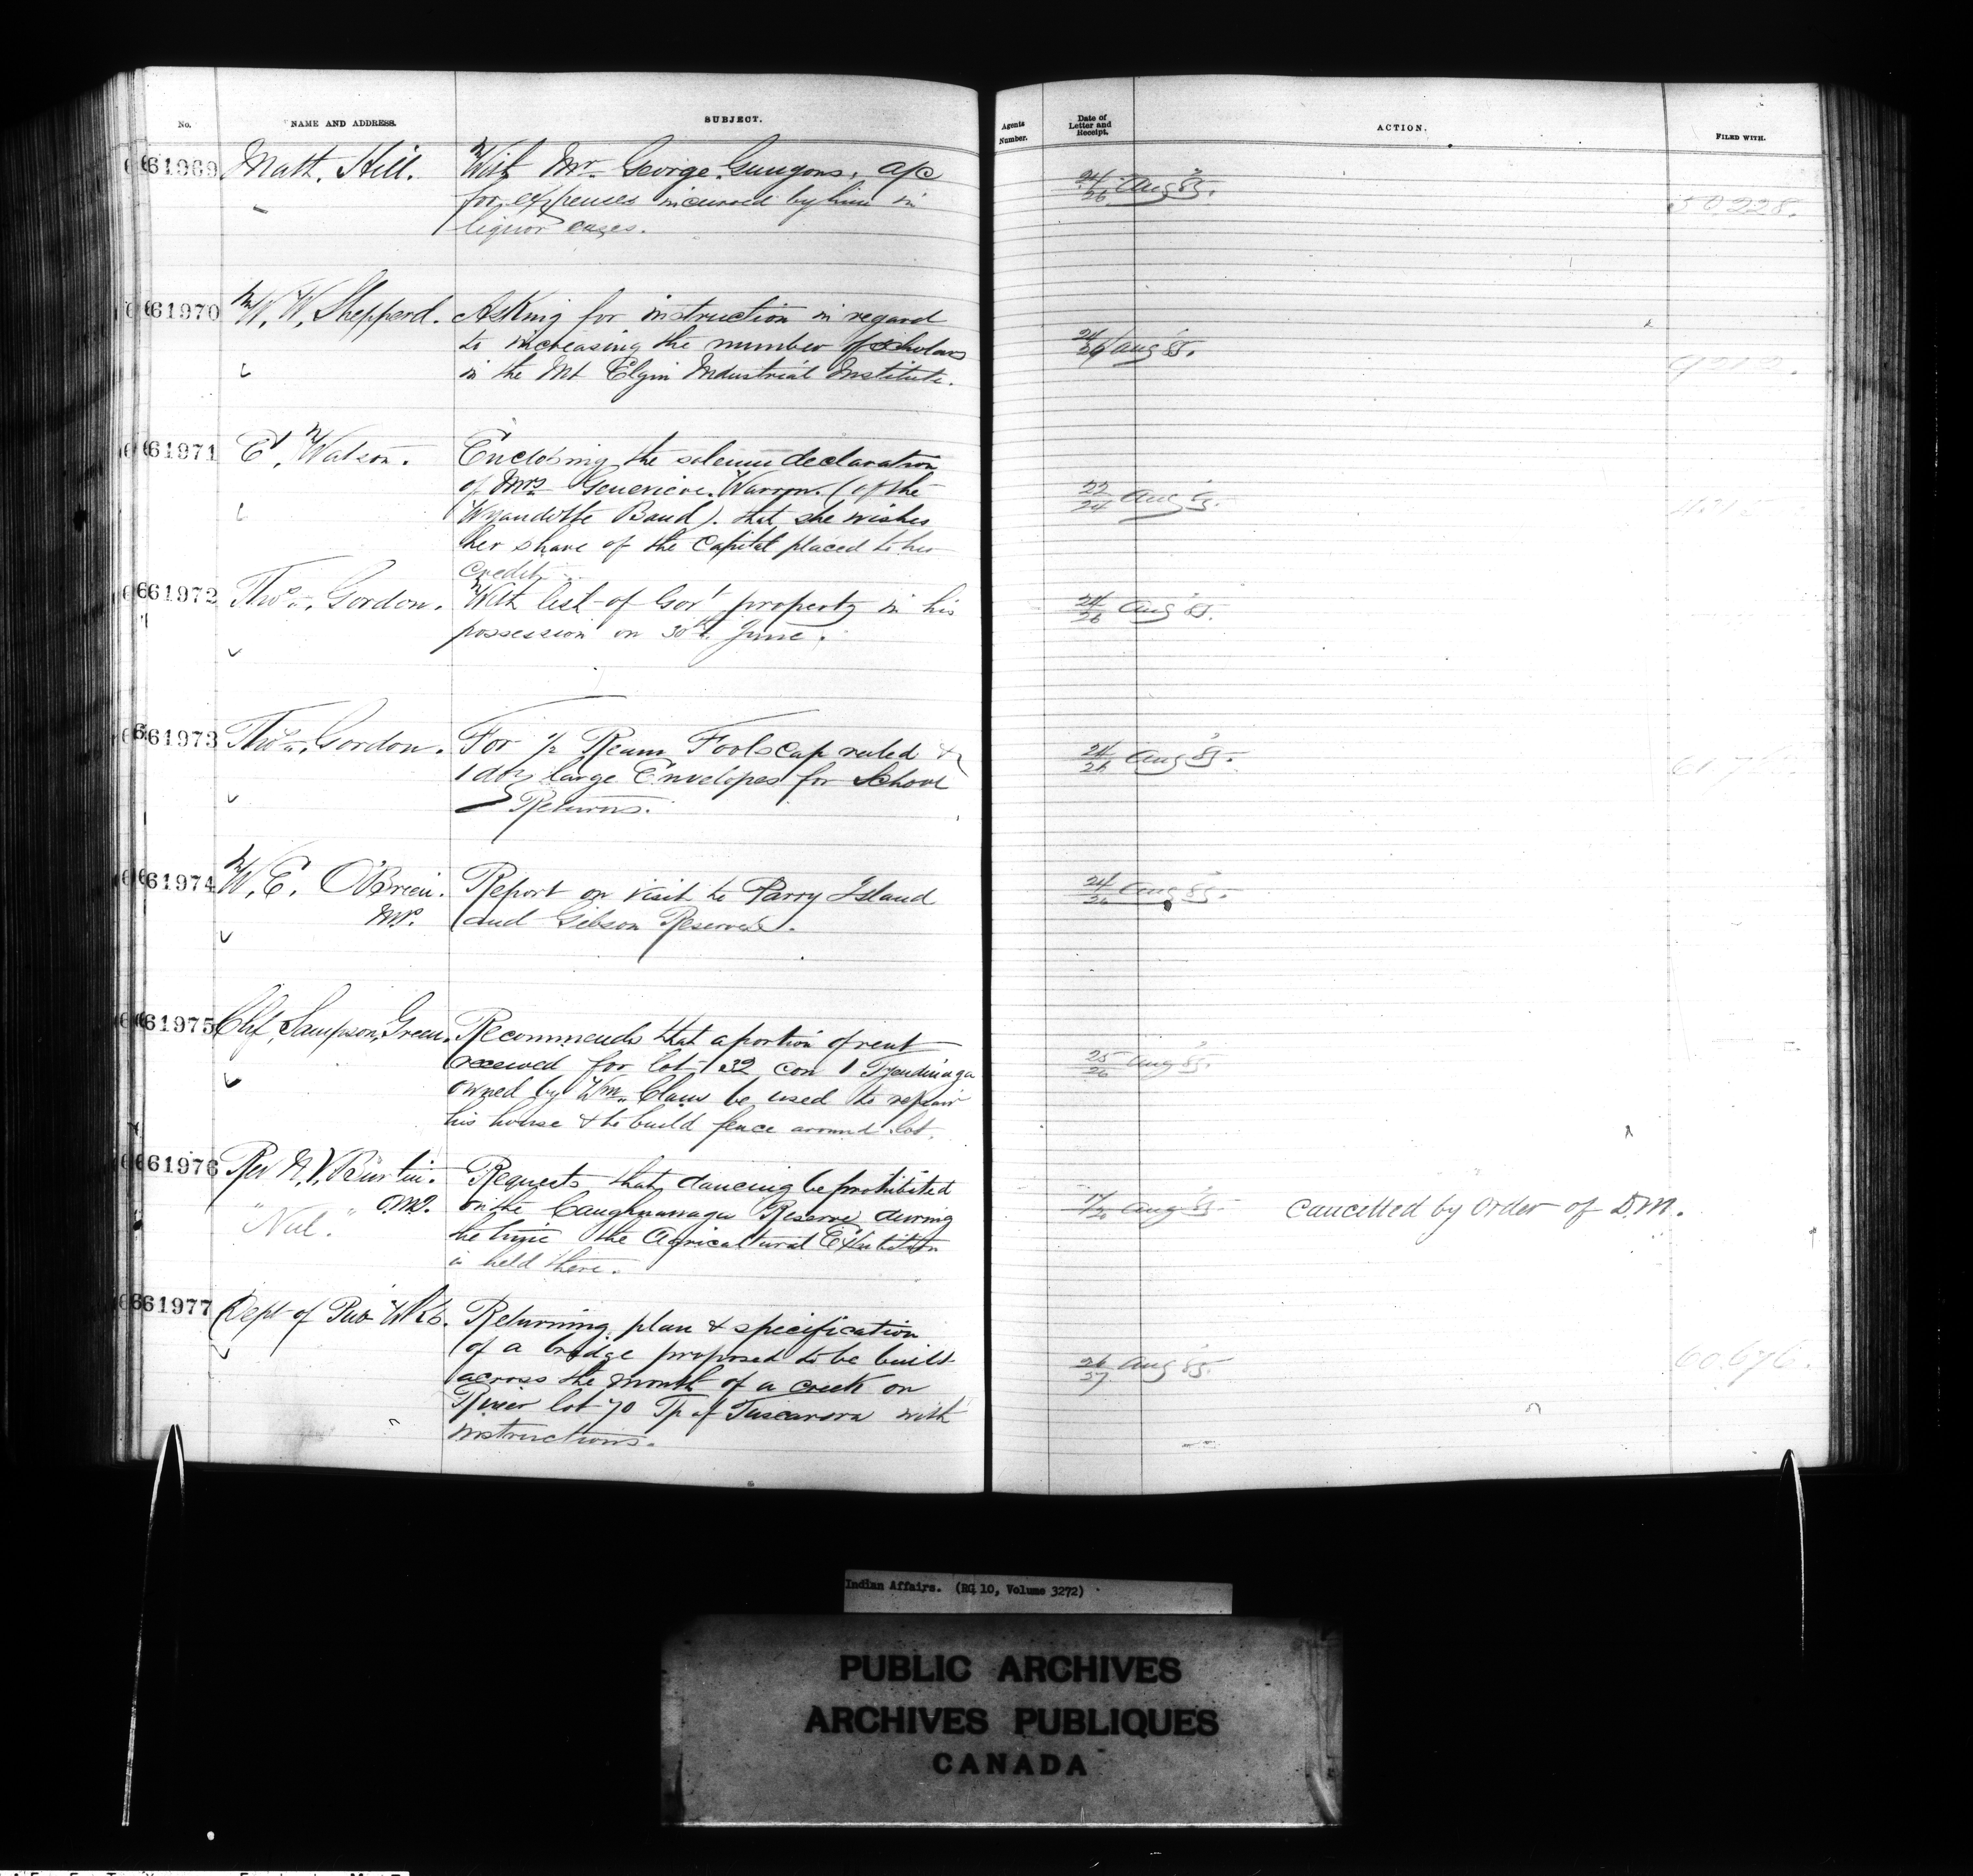 No.
NAME AND ADDRESS.
SUBJECT.
Agents Number.
Date of Letter and Receipt.
ACTION.
FILED WITH.
61969
Matt. Hill.
With Mr. George a/c
for expenses incurred by him in
liquor cases.
24/26 Aug 85.
50228.
61970
W. W. Shepperd.
Asking for instruction in regard
to increasing the number of scholars
in the Mt Elgin Industrial Institute.
24/26 Aug 85.
61971
E. Watson.
Enclosing the solemn declaration
of Mrs Genevieve Warron. (of the
Wyandotte Band). that she wishes
her share of the Capital placed to her
Credit.
22/24 Aug 85.
61972
Thos. Gordon.
With list of Gov't property in his
possession on 30th June.
24/26 Aug 85.
61973
Thos. Gordon.
For 1/2 Ream Foolscap ruled &
1 doz large Envelopes for School
Returns.
24/26 Aug 85.
61974
W. E. O'Brien.
MP.
Report on visit to Parry Island
and Gibson Reserves.
24/26 Aug 85.
61975
Chf. Sampson Green.
Recommends that a portion of rent
received for lot 32 con 1 Tyendinaga
owned by Wm. Claus be used to repair
his house & to build fence around lot.
25/26 Aug 85.
61976
Rev N. V. Burtin.
OMI.
"Nul."
Requests that dancing be prohibited
on the Caughnawaga Reserve during
the time the Agricultural Exhibition
is held there.
Aug 85.
Cancelled by order of D.M.
61977
Dept of Pub Wks.
Returning plan & specification
of a bridge proposed to be built
across the mouth of a creek on
River lot 70 Tp of Tuscarora with
instructions.
26/27 Aug 85.
60.676.
Indian Affairs. (RG 10, Volume 3272)
PUBLIC ARCHIVES
ARCHIVES PUBLIQUES
CANADA